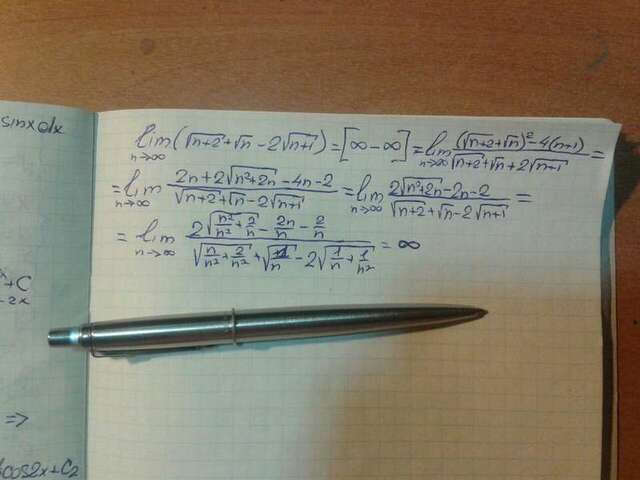 sinxdx
lim n→∞ (√(n+2) + √n - 2√(n+1)) = [∞ - ∞] = lim n→∞ ((√(n+2) + √n)² - 4(n+1)) / (√(n+2) + √n + 2√(n+1)) =
= lim n→∞ (2n + 2√(n²+2n) - 4n - 2) / (√(n+2) + √n - 2√(n+1)) = lim n→∞ (2√(n²+2n) - 2n - 2) / (√(n+2) + √n - 2√(n+1)) =
= lim n→∞ (2√(n²/n² + 2/n) - 2n/n - 2/n) / (√(n/n² + 2/n²) + √(1/n) - 2√(1/n + 1/n²)) = ∞
+C
-2x
=>
cos2x+C₂